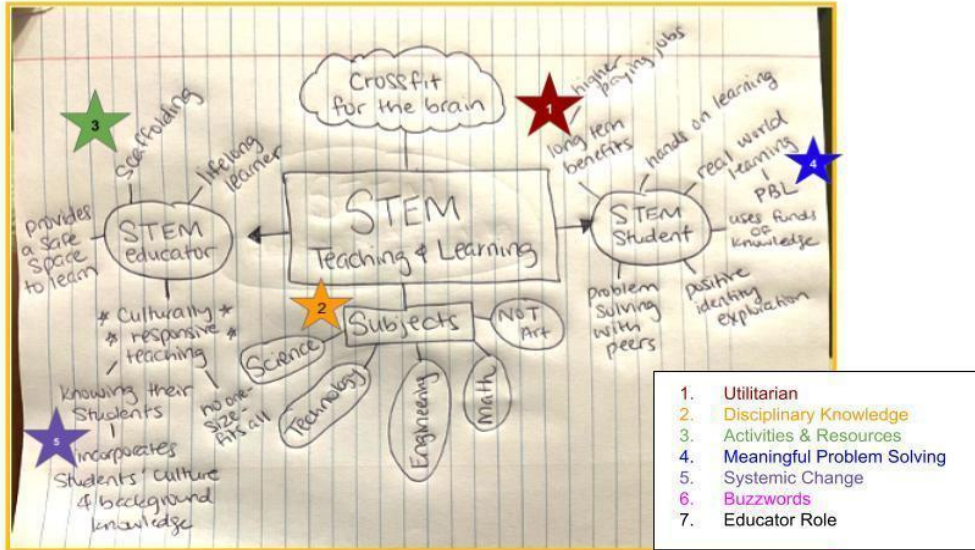 Crossfit
for the brain
1
higher
paying jobs
long term
benefits
hands on learning
real world
learning
PBL
4
uses funds
of
knowledge
positive
identity
exploration
problem
solving
with
peers
STEM
Student
STEM
Teaching & Learning
3
Scaffolding
lifelong
learner
provides
a safe
space
to learn
STEM
educator
* Culturally *
* responsive *
teaching
knowing their
Students
5
incorporates
Students' culture
& background
knowledge
no one-
size-
fits all
2
Subjects
NOT
Art
Science
Technology
Engineering
Math
1. Utilitarian
2. Disciplinary Knowledge
3. Activities & Resources
4. Meaningful Problem Solving
5. Systemic Change
6. Buzzwords
7. Educator Role